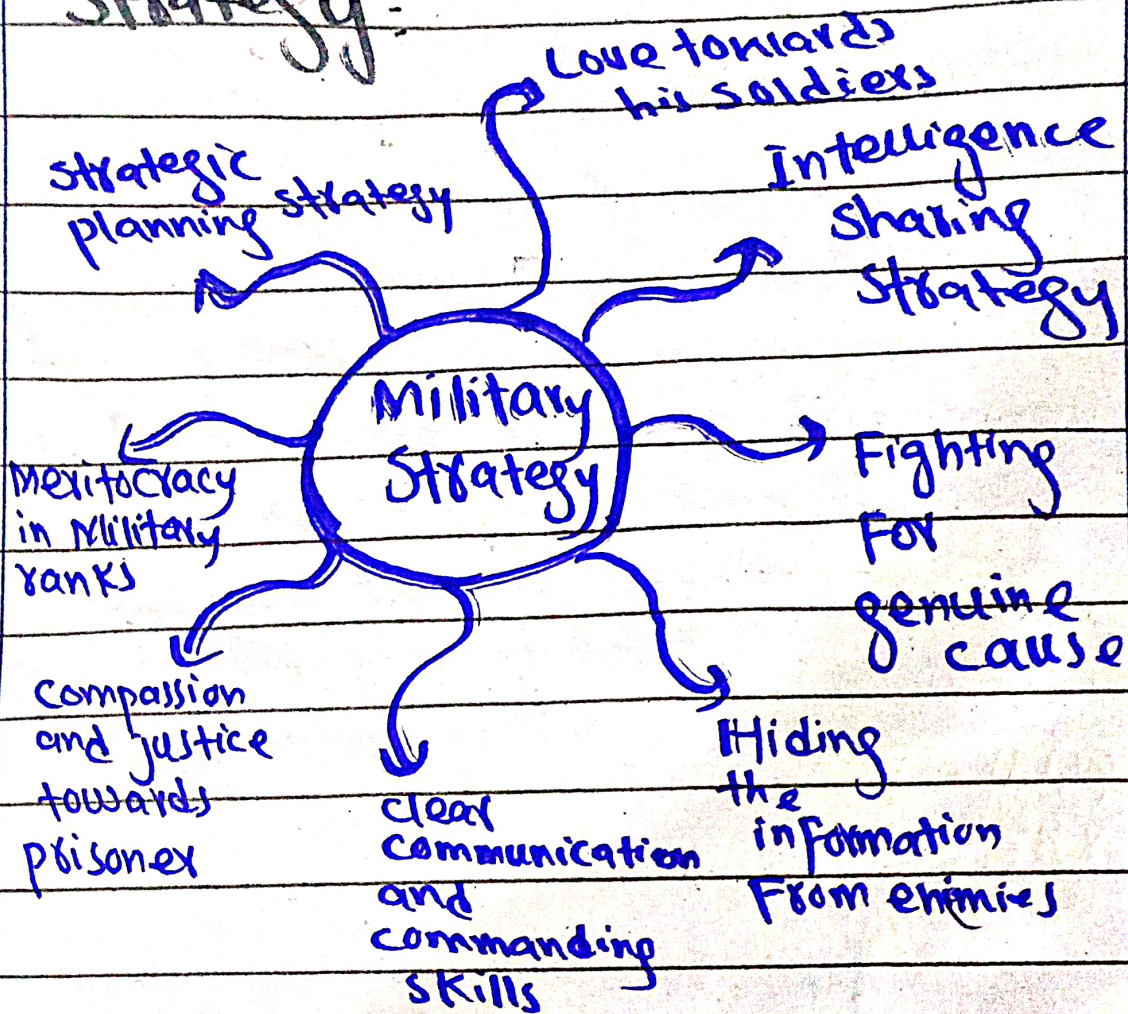 Strategy:
Love towards
his soldiers
Intelligence
sharing
strategy
Fighting
For
genuine
cause
Hiding
the
information
From enimies
clear
communication
and
commanding
skills
compassion
and justice
towards
prisoner
Meritocracy
in Military
ranks
strategic
planning strategy
Military
Strategy